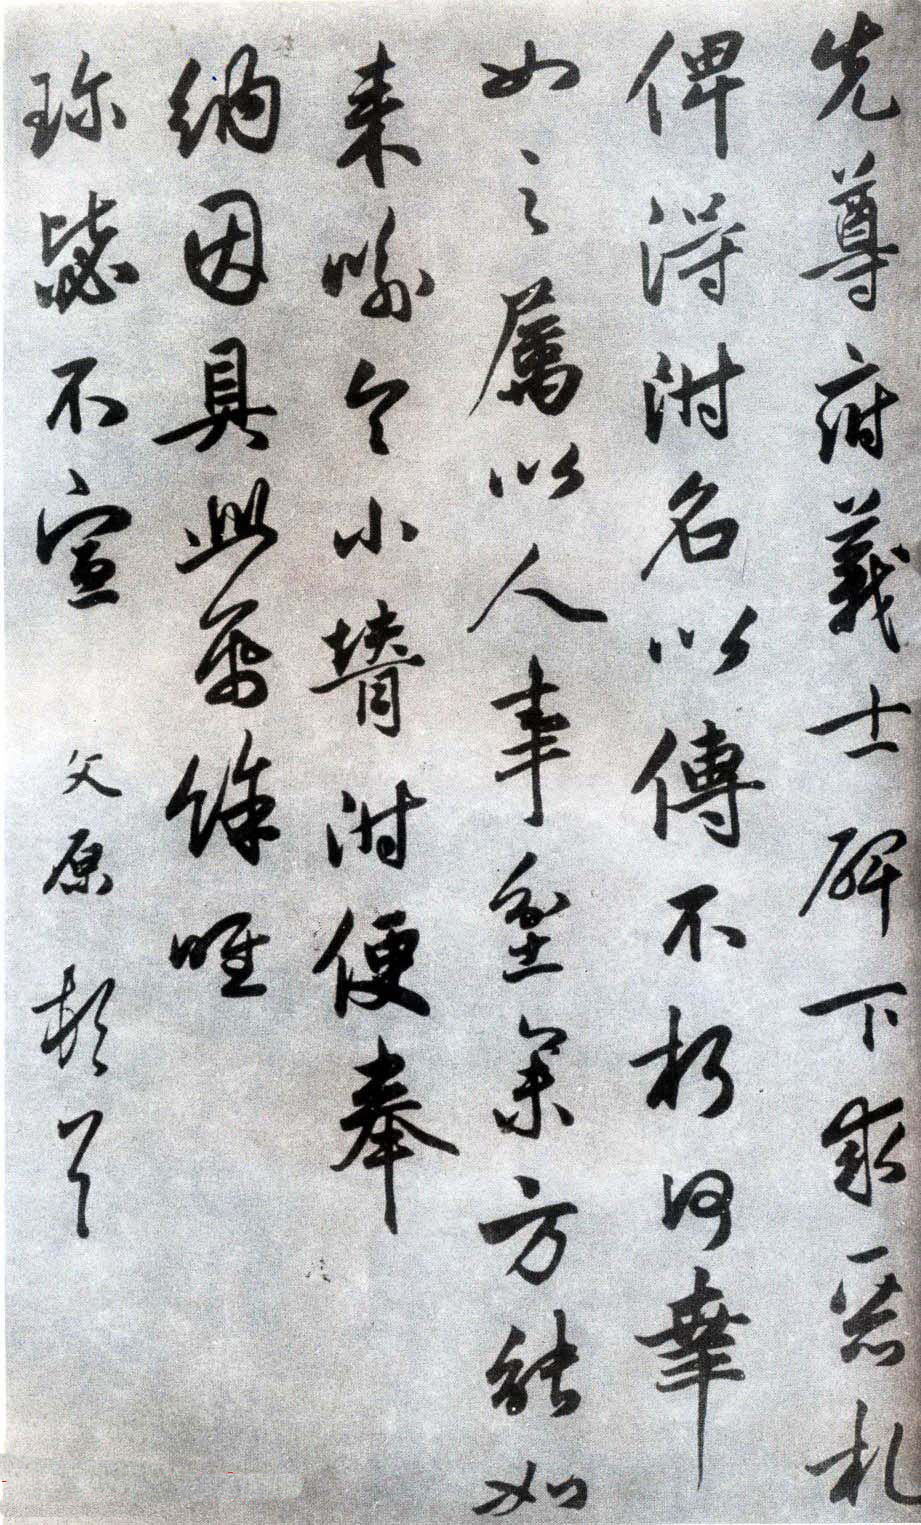 先尊府義士碑下求惡札
俾得附名以傳不朽何幸
如之屬以人事坌集方能如
來喻今小壻附便奉
納因具此餘唯
珍毖不宣 文原 頓首